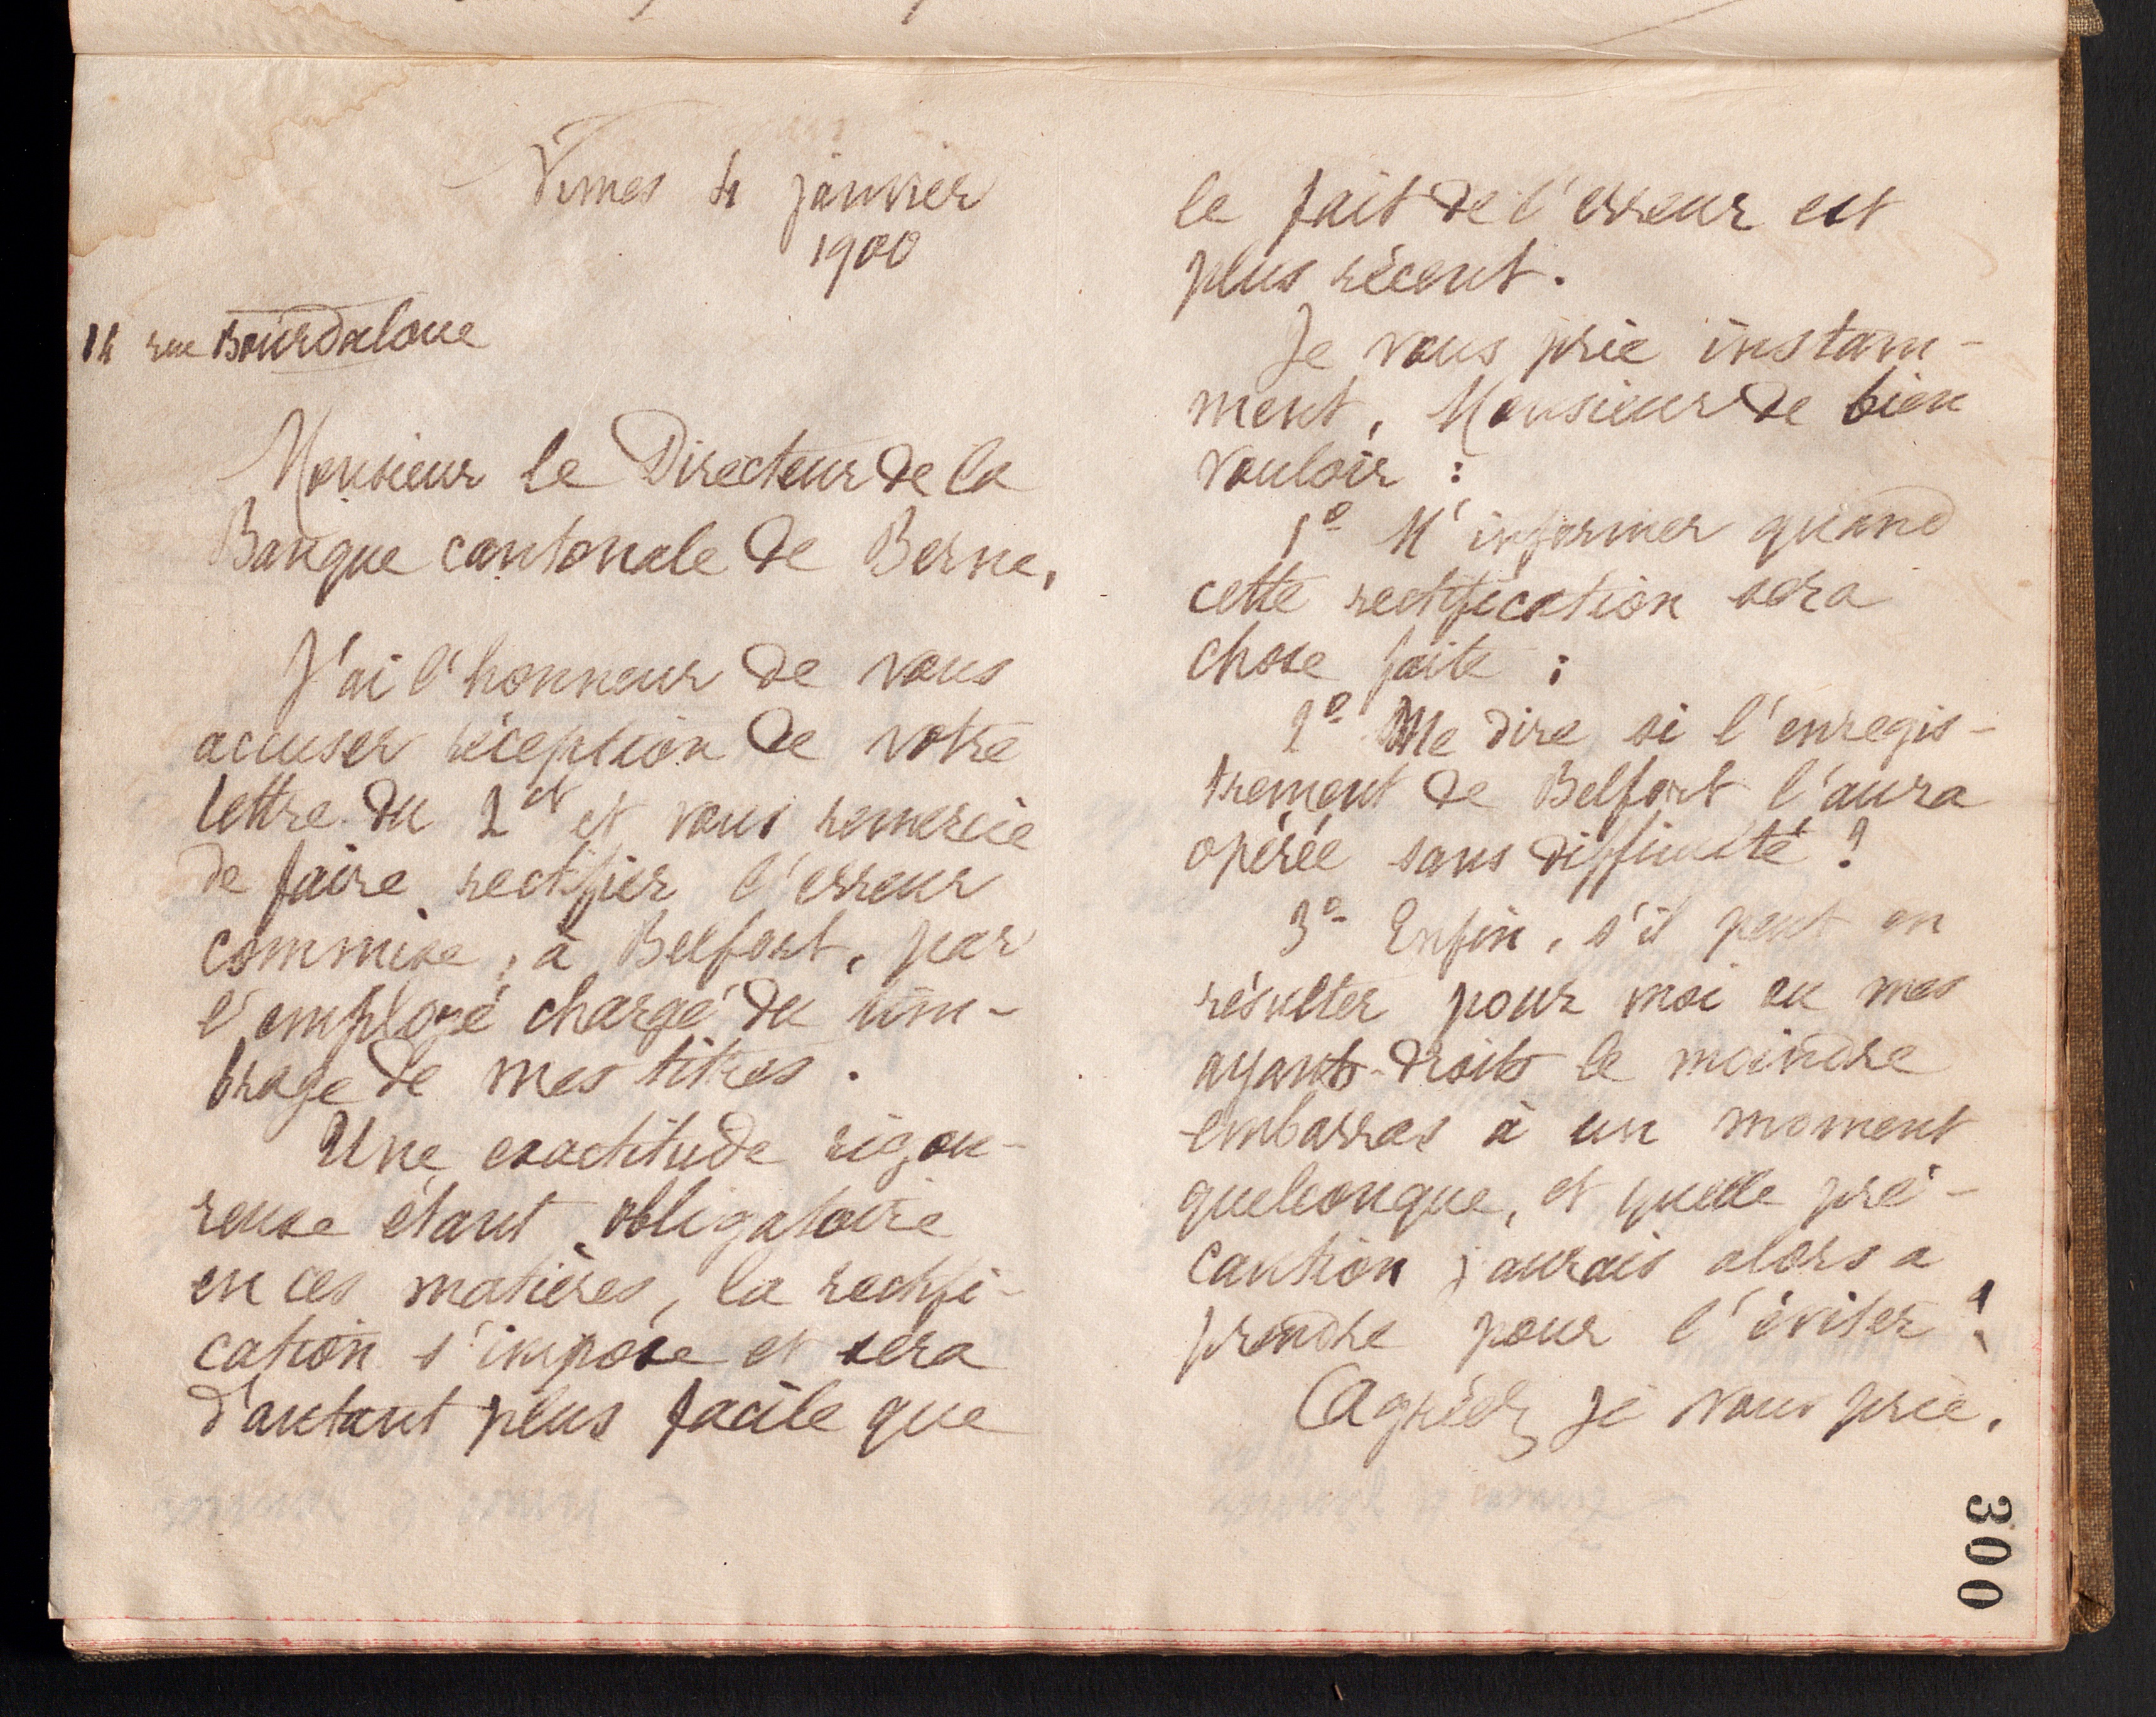 Nimes 4 janvier
1900
14 rue Bourdaloue
Monsieur le Directeur de la
Banque cantonale de Berne,
J'ai l'honneur de vous
accuser réception de votre
lettre du 2 ct et vous remercie
de faire rectifier l'erreur
commise, à Belfort, par
l'employé chargé du tim-
brage de mes titres.
Une exactitude rigou-
reuse étant obligatoire
en ces matières, la rectifi-
cation s'impose et sera
d'autant plus facile que
le fait de l'erreur est
plus récent.
Je vous prie instam-
ment, Monsieur de bien
vouloir :
1º M'informer quand
cette rectification sera
chose faite ;
2º Me dire si l'enregis-
trement de Belfort l'aura
opérée sans difficulté ?
3º Enfin, s'il peut en
résulter pour moi ou mes
ayants-droits le moindre
embarras à un moment
quelconque, et quelle pré-
caution j'aurais alors a
prendre pour l'éviter ?
Agréez je vous prie,
300